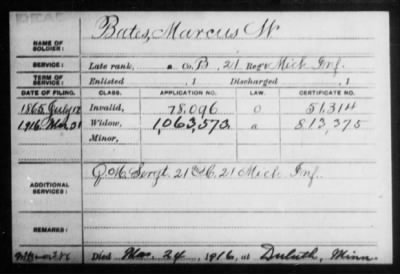 DEAF
NAME OF SOLDIER: Bates, Marcus W
SERVICE: Late rank, a Co. B, 21 Reg't Mich Inf.
TERM OF SERVICE: Enlisted , 1 Discharged , 1
DATE OF FILING. CLASS. APPLICATION NO. LAW. CERTIFICATE NO.
1865 July 12 Invalid, 78,096 O 51314
1916 Mar 31 Widow, 1,063,573. a 813,375
Minor,
ADDITIONAL SERVICES: Q M Sergt. 21 Mich Inf.
REMARKS:
Died Mar. 24, 1916, at Duluth, Minn.